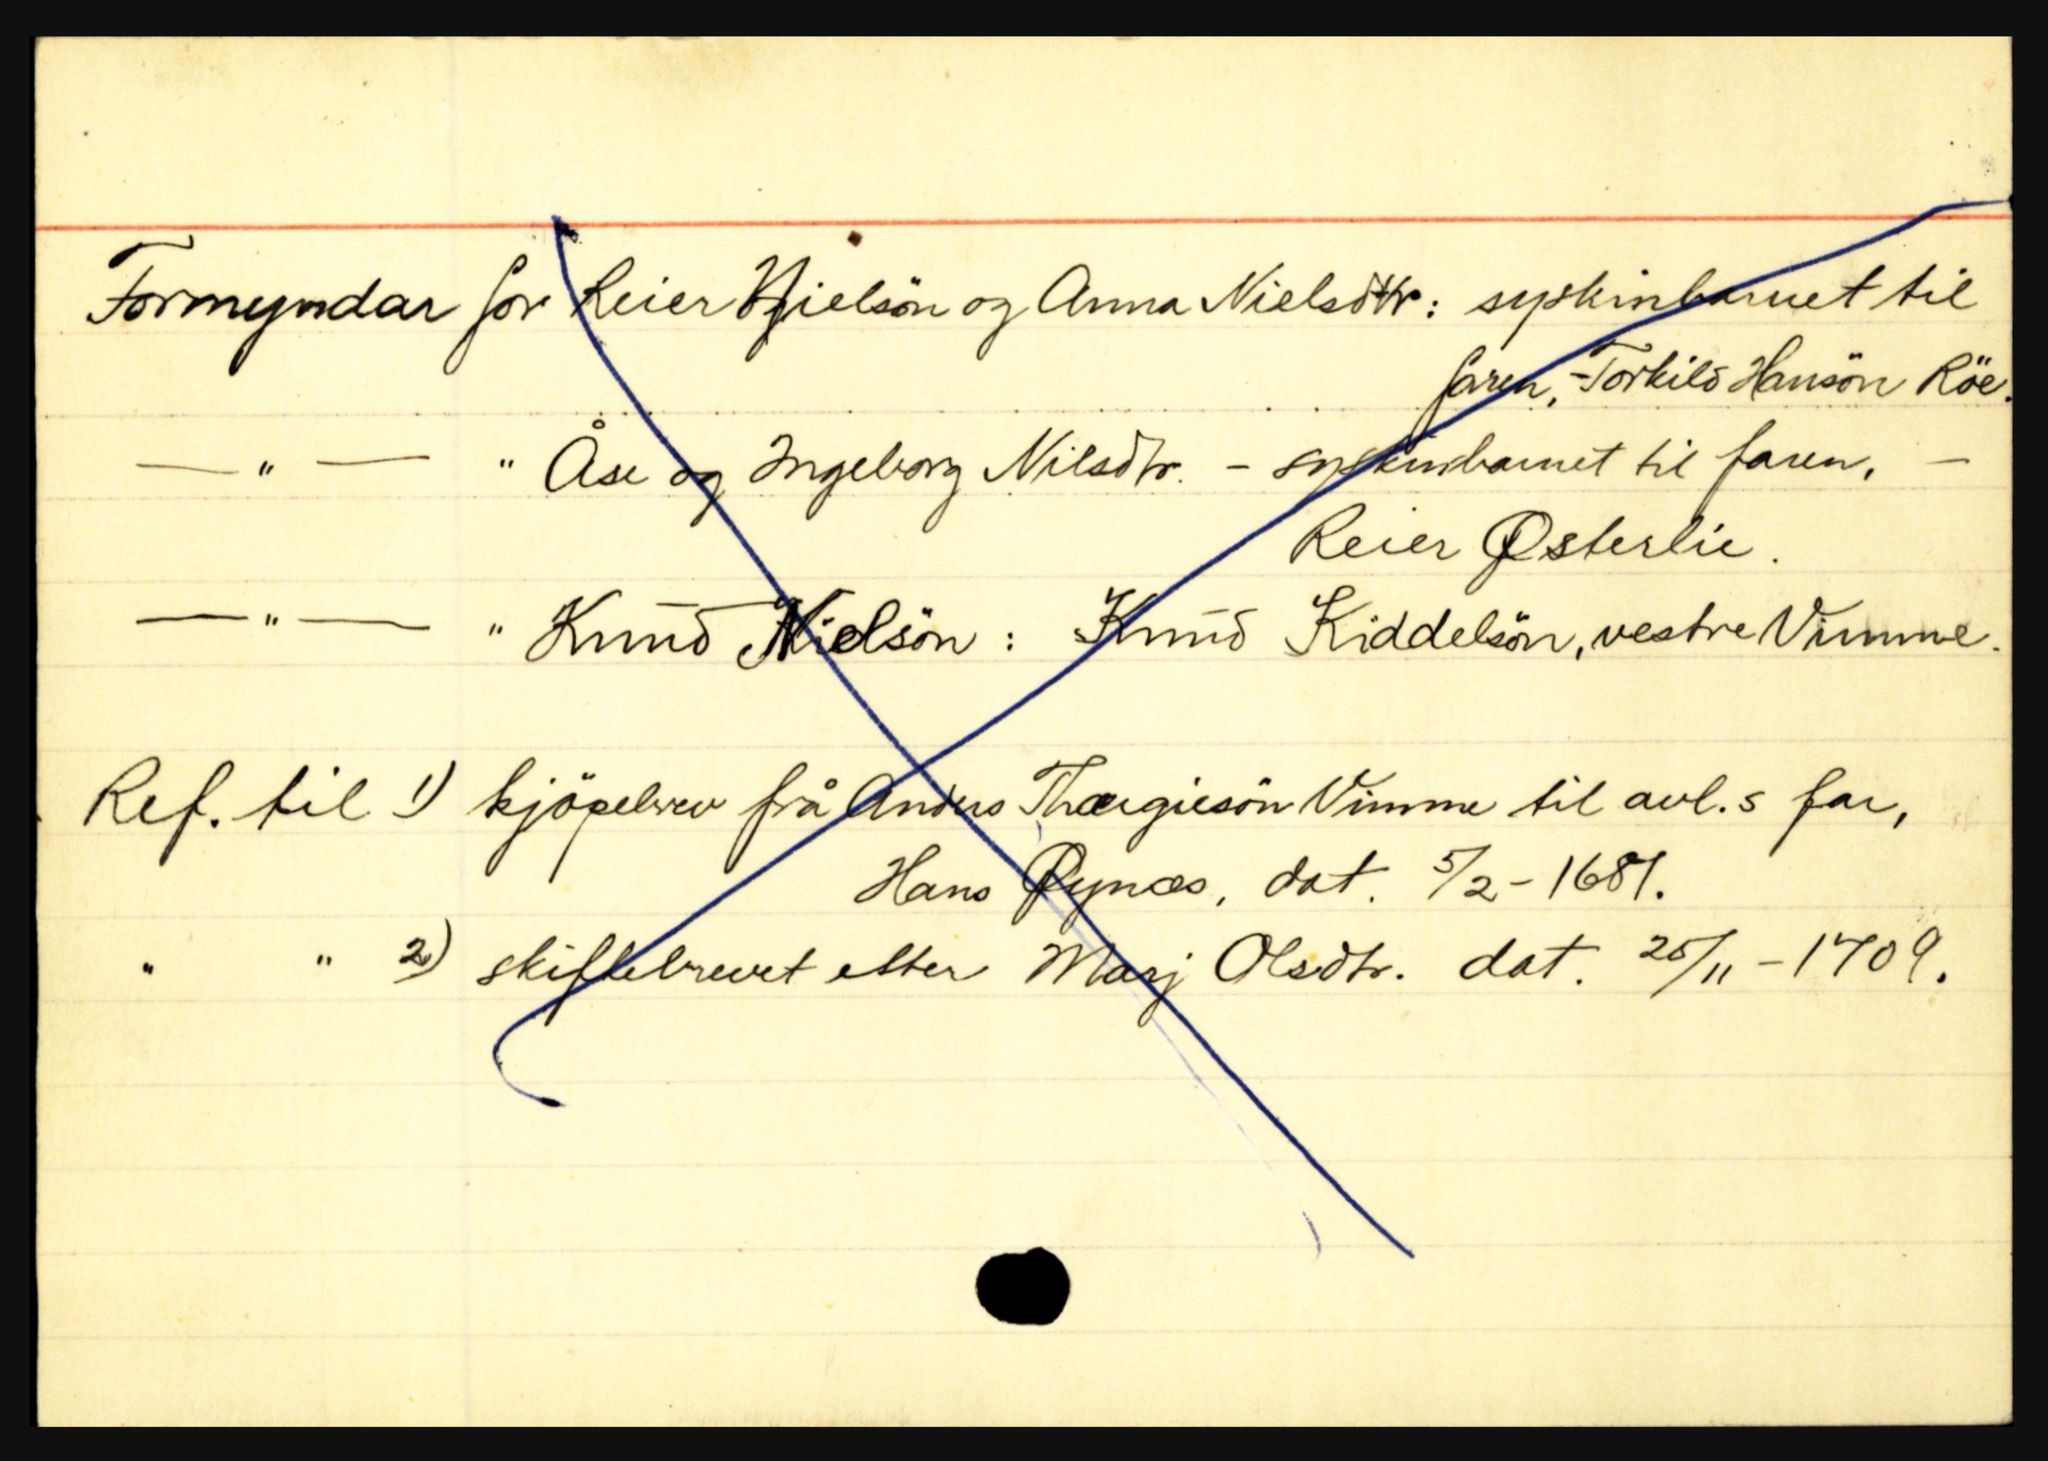 Formyndar for Reier Nielsön og Anna Nielsdtr: syskinbarnet til
faren, Torkild Hansön Röe.
— " — " Åse og Ingeborg Nilsdtr. - syskinbarnet til faren, -
Reier Østerlie.
— " — " Knud Nielsön : Knud Kiddelsön, vestre Vimme.
Ref. til 1) kjöpebrev frå Anders Thorgiesön Vimme til avl.s far,
Hans Øynæs, dat. 5/2 - 1681.
" " 2) skiftebrevet etter Marj Olsdtr. dat. 25/11 - 1709.